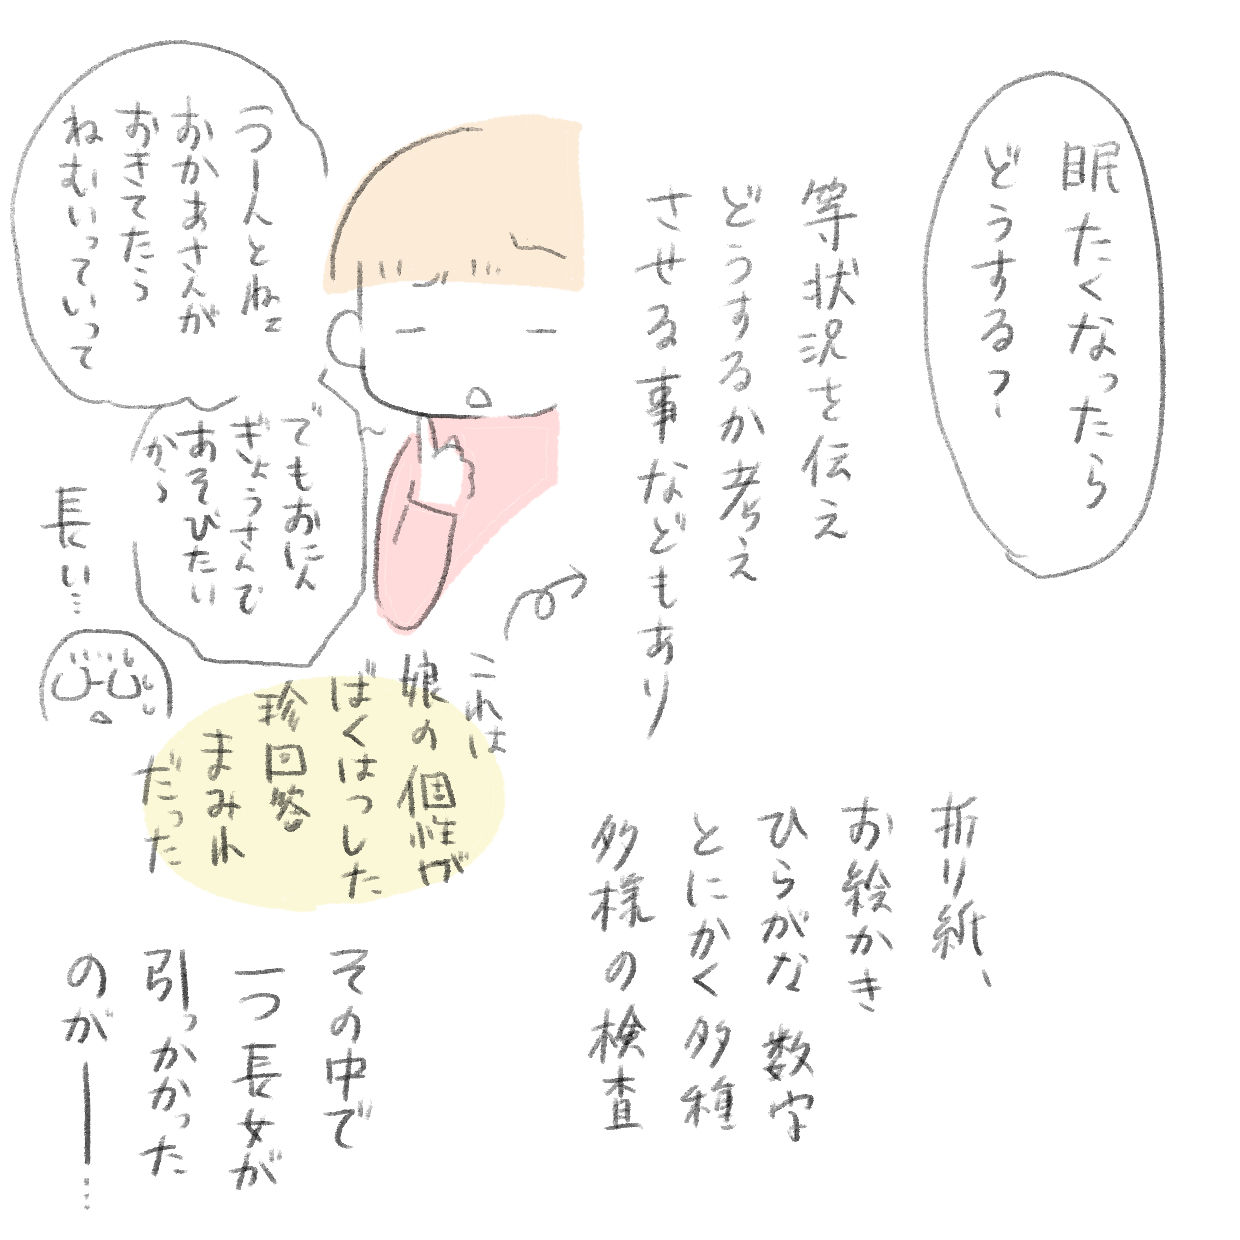 眠たくなったら
どうする?
等状況を伝え
どうするか考え
させる事などもあり
うーんとねェ
おかあさんが
おきてたら
ねむいっていって
でもおにん
ぎょうさんで
あそびたい
から
長い…
これは
娘の個性が
ばくはつした
珍回答
まみれ
だった
折り紙、
お絵かき
ひらがな 数字
とにかく多種
多様の検査
その中で
一つ長女が
引っかかった
のが——…